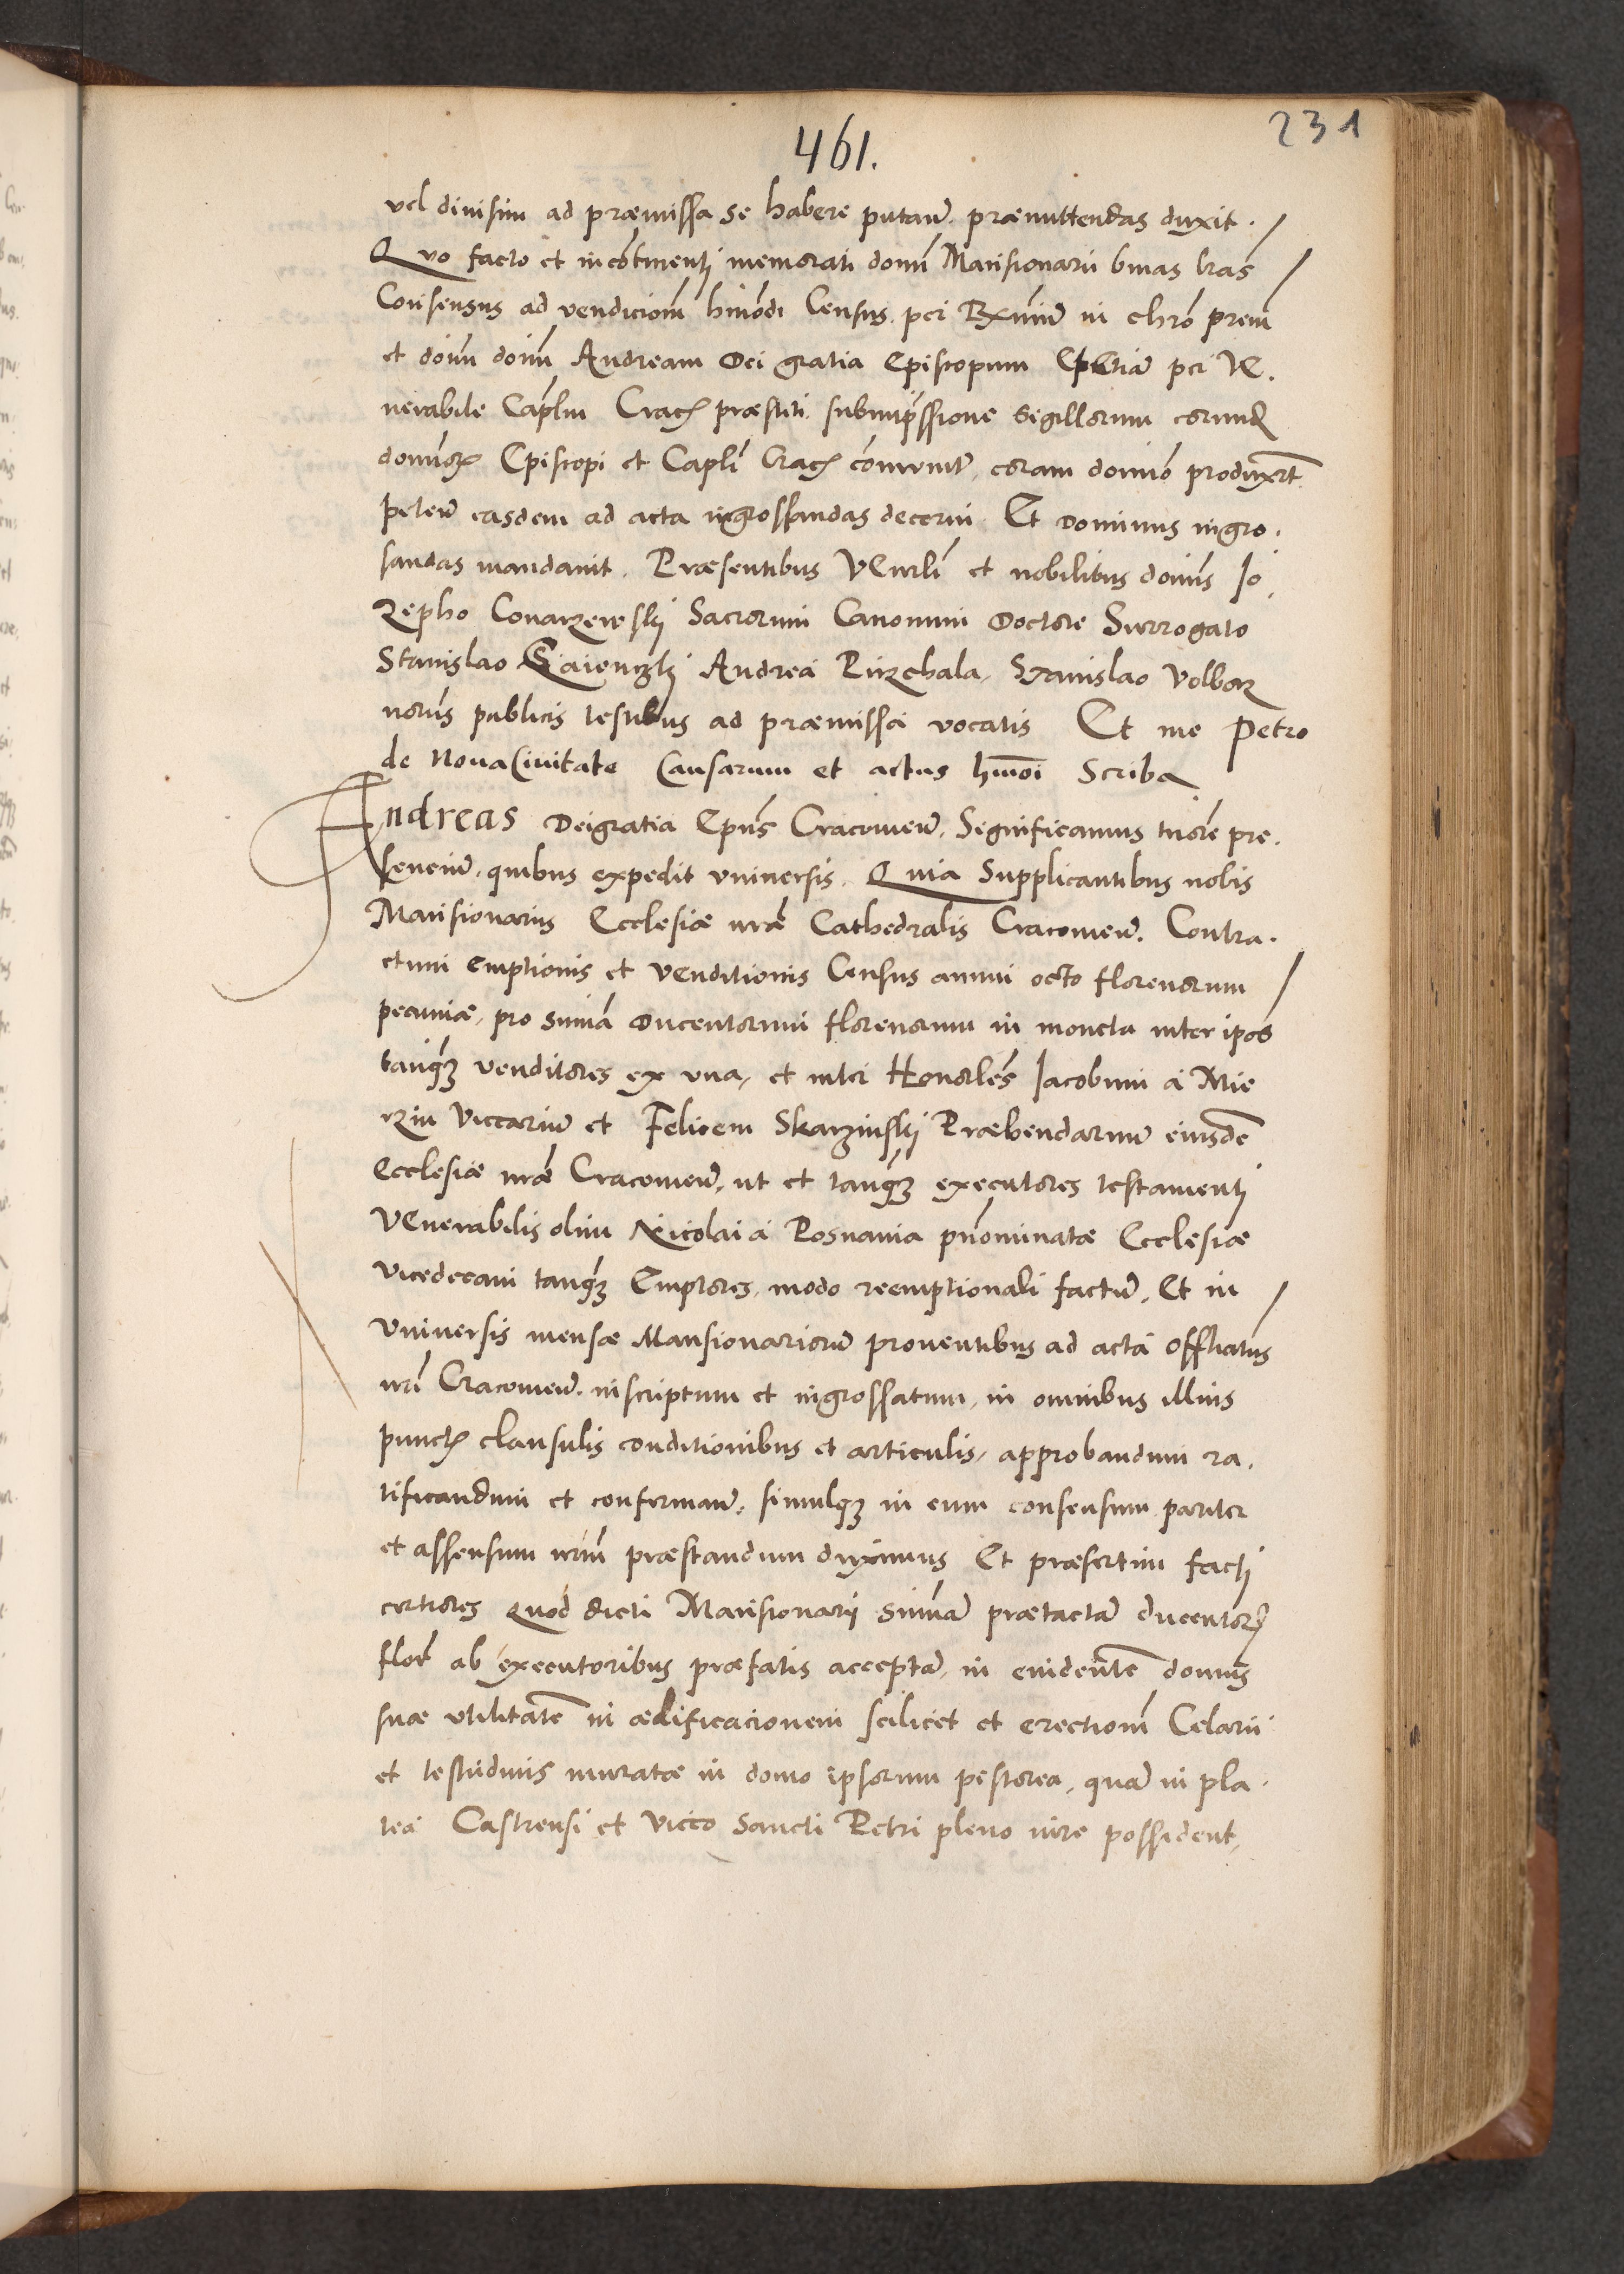 461.
231
vel diuisim ad præmissa se habere putauit. præmittendas duxit.
Quo facto et incontinenti memorati domi Mansionarii binas lras
Consensus ad vendiciom hmodi Census per Rxmum in chro prem
et dom dom Andream Dei gratia Episcopum et etiam per Ve.
nerabile Caplm Crac præstiti. subimpressione Sigillorum eorund
domor Episcopi et Capli Crac communit, coram domino produxert
peten easdem ad acta ingrossandas decerni Et Dominus ingro.
sandas mandauit. Præsentibus Venrli et nobilibus domis Jo
zepho Conarzewskij Sacrorum Canonum Doctore Surrogato
Stanislao Andrea Pirzchala, Stanislao Volborz
notrus publicis testibus ad præmissa vocatis Et me Petro
de Noua Ciuitate Causarum et actus hmoi Scriba
Andreas Deigratia Epus Cracouien. Significamus tnore pre.
sencium. quibus expedit vniuersis. Quia Supplicantibus nobis
Mansionarius Ecclesiæ nræ Cathedralis Cracouien. Contra.
ctum emptionis et venditionis Census annui octo florenorum
pecuniæ, pro summa Ducentorum florenorum in moneta inter ipos
tanqz venditores ex vna, et inter Honorles Jacobum a Mie
rzin viccarium et Felicem Skarzinskij Præbendarium eiusde
Ecclesiæ nræ Cracouien, ut et tanqz executores testamentj
Venerabilis olim Nicolai a Posnania pnominatæ Ecclesiæ
vicedecani tanqz Emptores, modo reemptionali factum, Et in
vniuersis mensæ Mansionariorum prouentibus ad acta Offliatus
nri Cracouien. inscriptum et ingrossatum, in omnibus illius
punct clausulis conditionibus et articulis, approbandum ra.
tificandum et conferman, simulqz in eum consensum pariter
et assensum nrum præstandum duximus Et præsertim factj
certiores quod dicti Mansionarij Summa prætacta ducentor
flor ab executoribus præfatis accepta, in euidente domus
suæ vtilitate in ædificacionem scilicet et erectiom Celarii
et testudinis muratæ in domo ipsorum pistorea, qua in pla.
tea Castrensi et Vicco Sancti Petri pleno iure possident,